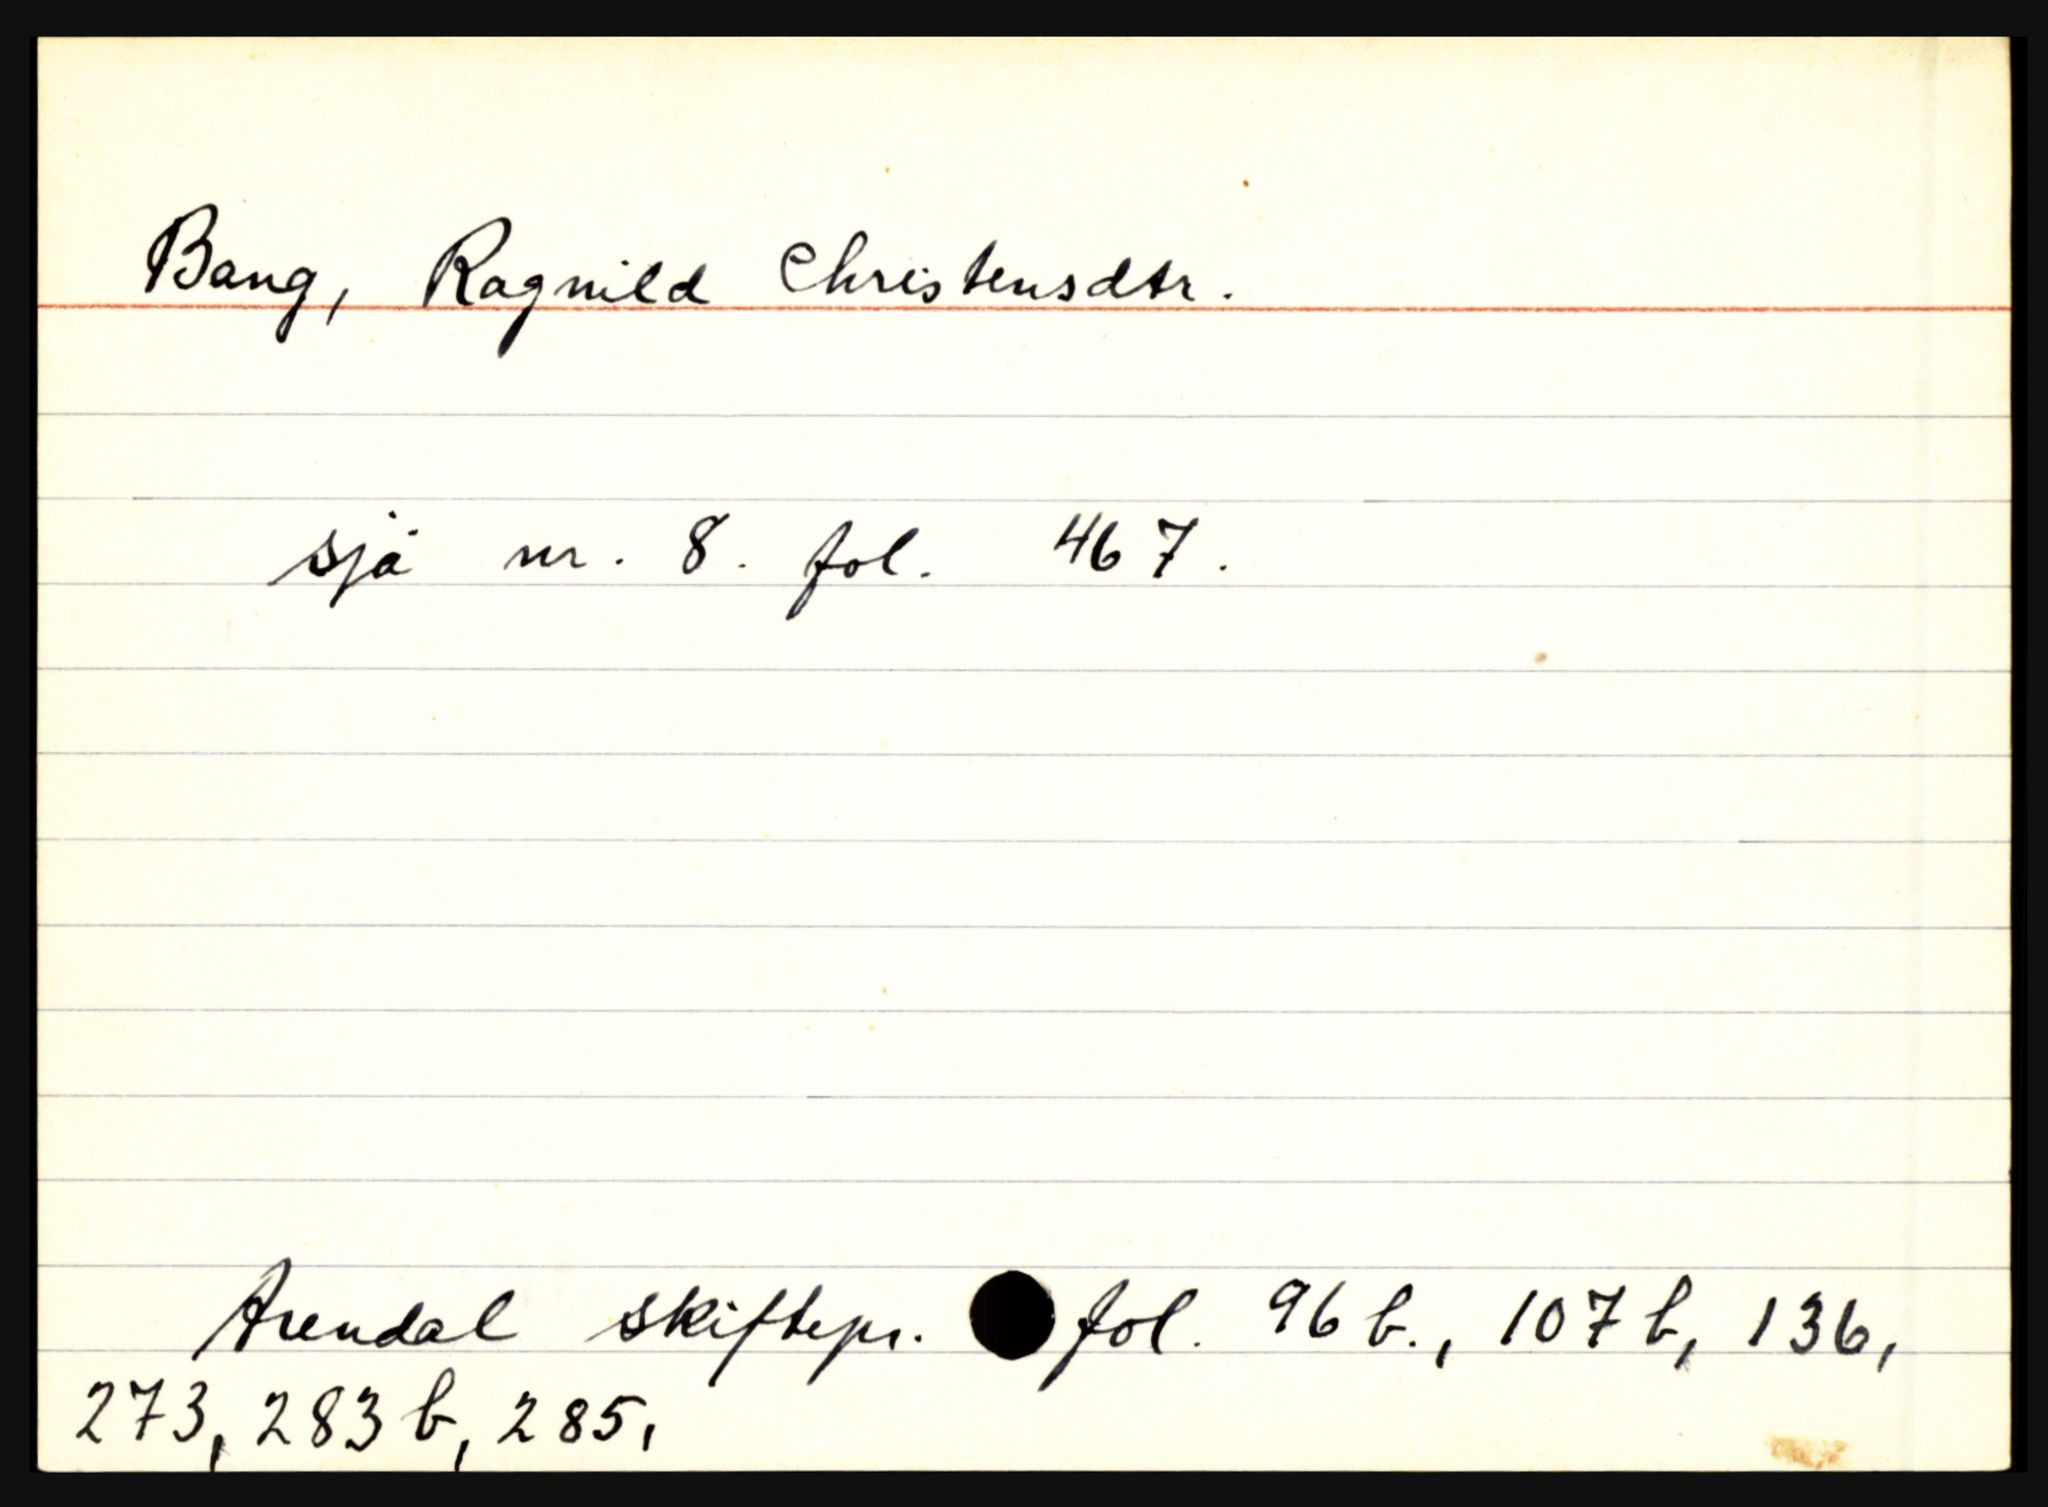 Bang, Ragnild Christensdtr.
sjå nr. 8. fol. 467.
Arendal skiftepr. fol. 96 b., 107 b, 136,
273, 283 b, 285,